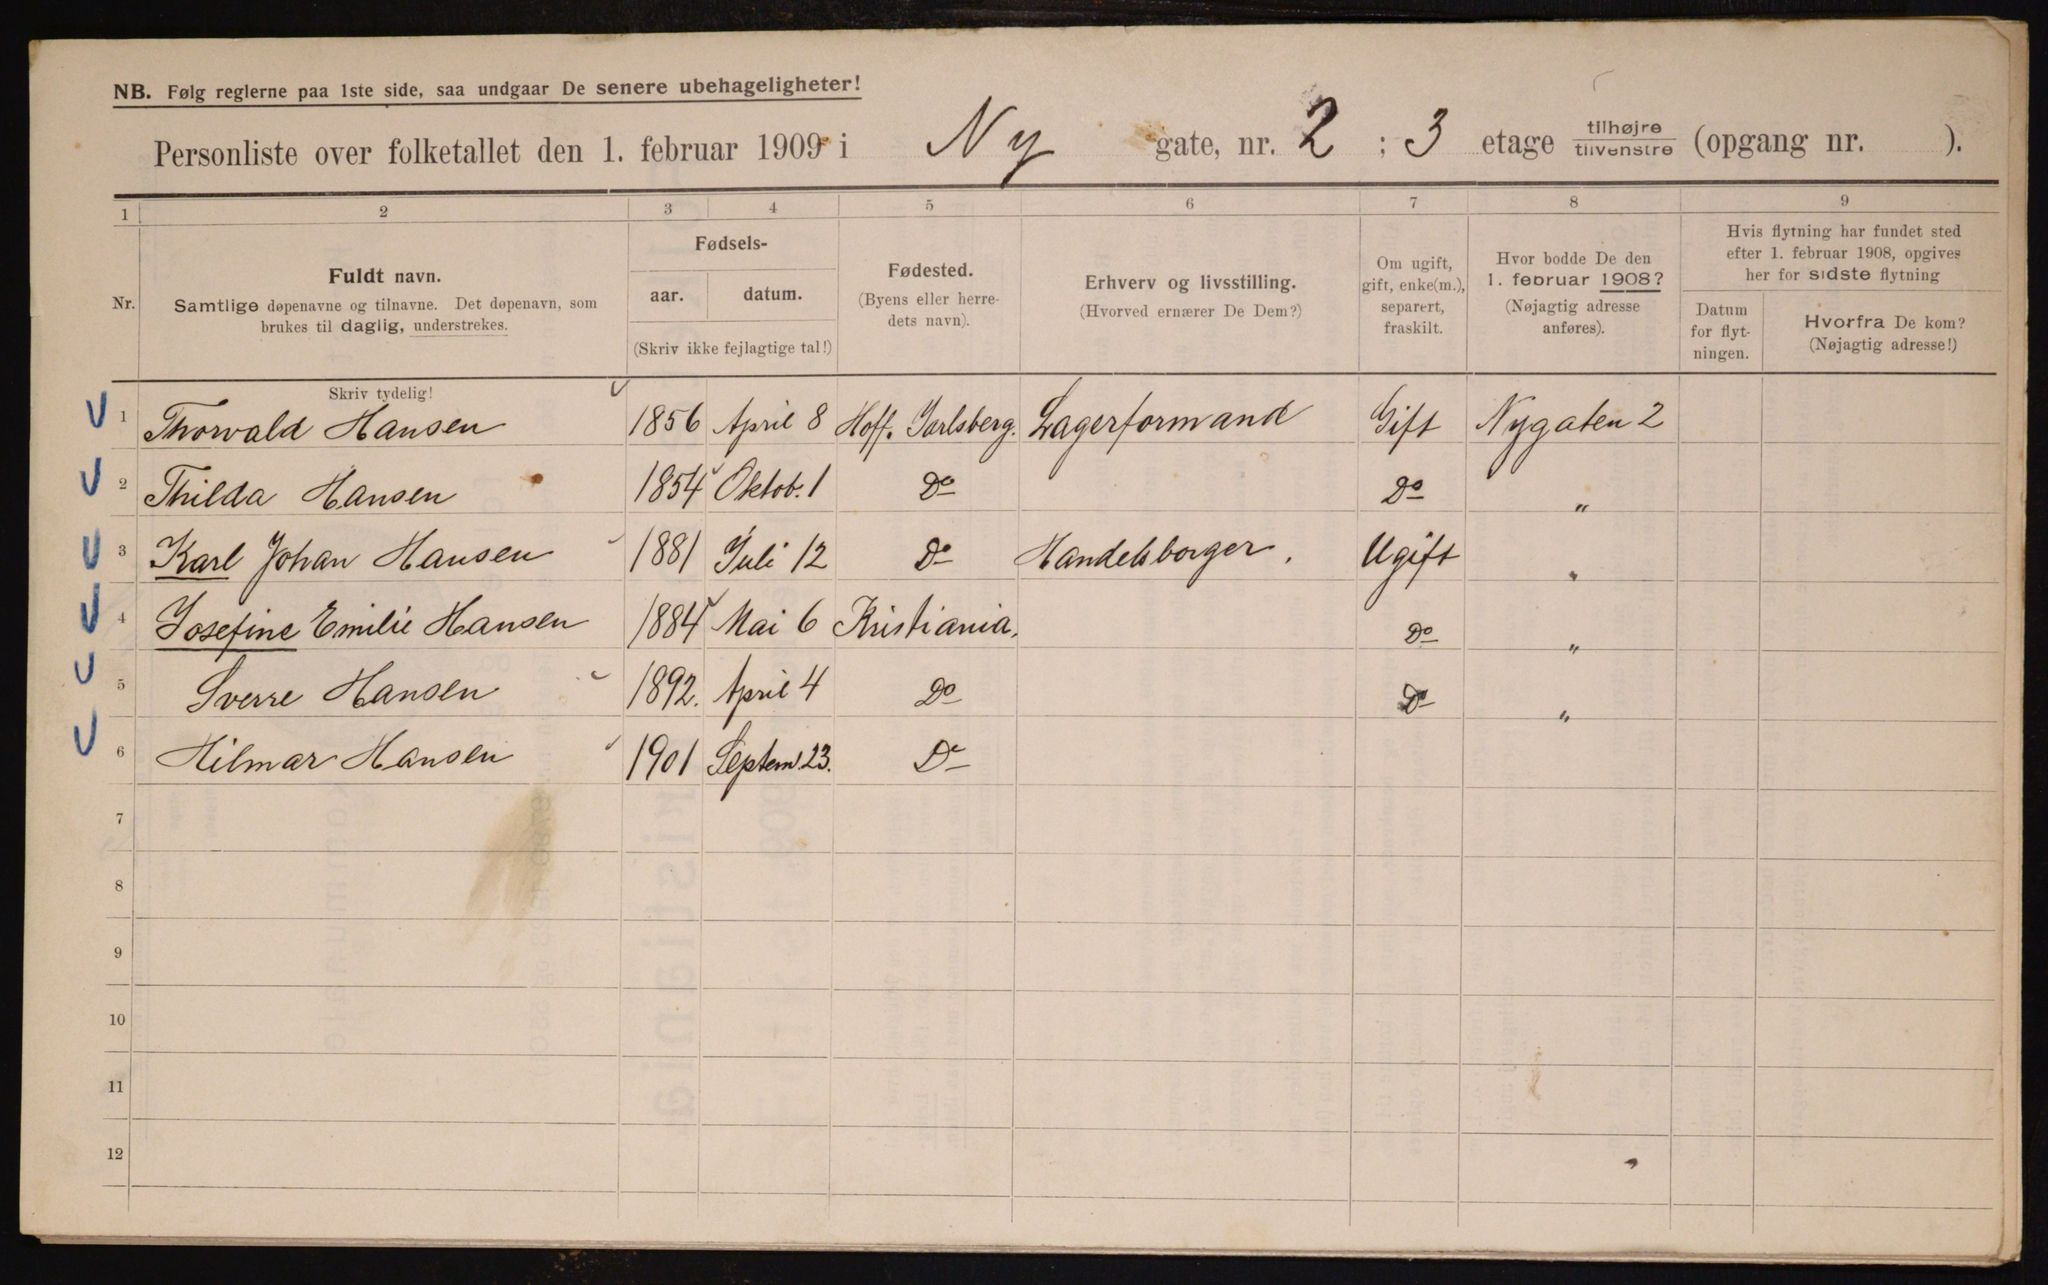 NB. Følg reglerne paa 1ste side, saa undgaar De senere ubehageligheter!
Personliste over folketallet den 1. februar 1909 i Ny gate, nr. 2 ; 3 etage tilhøjre tilvenstre (opgang nr. ).
1 2 3 4 5 6 7 8 9
Nr.
Fuldt navn.
Samtlige døpenavne og tilnavne. Det døpenavn, som
brukes til daglig, understrekes.
Skriv tydelig!
Fødsels-
aar. datum.
(Skriv ikke fejlagtige tal!)
Fødested.
(Byens eller herre-
dets navn).
Erhverv og livsstilling.
(Hvorved ernærer De Dem?)
Om ugift,
gift, enke(m.),
separert,
fraskilt.
Hvor bodde De den
1. februar 1908?
(Nøjagtig adresse
anføres).
Hvis flytning har fundet sted
efter 1. februar 1908, opgives
her for sidste flytning
Datum
for flyt-
ningen.
Hvorfra De kom?
(Nøjagtig adresse!)
1 Thorvald Hansen 1856 April 8 Hoff. Jarlsberg. Lagerformand Gift Nygaten 2
2 Thilda Hansen 1854 Oktob. 1 Do Do "
3 Karl Johan Hansen 1881 Juli 12 Do Handelsborger. Ugift "
4 Josefine Emilie Hansen 1884 Mai 6 Kristiania. Do "
5 Sverre Hansen 1892. April 4 Do Do "
6 Hilmar Hansen 1901 Septem. 23. Do
7
8
9
10
11
12